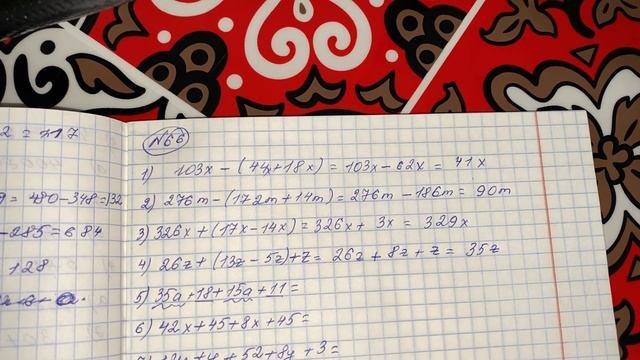 2 = 217
№66
1) 103x - (44x+18x) = 103x - 62x = 41x
= 480 - 348 = 132
2) 276m - (172m + 14m) = 276m - 186m = 90m
- 285 = 684
3) 326x + (17x - 14x) = 326x + 3x = 329x
128
4) 26z + (13z - 5z) + z = 26z + 8z + z = 35z
5) 35a + 18 + 15a + 11 =
6) 42x + 45 + 8x + 45 =
+ 52 + 8y + 3 =